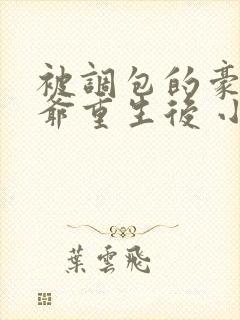 被調包的豪
爺重生後小
葉雲飛